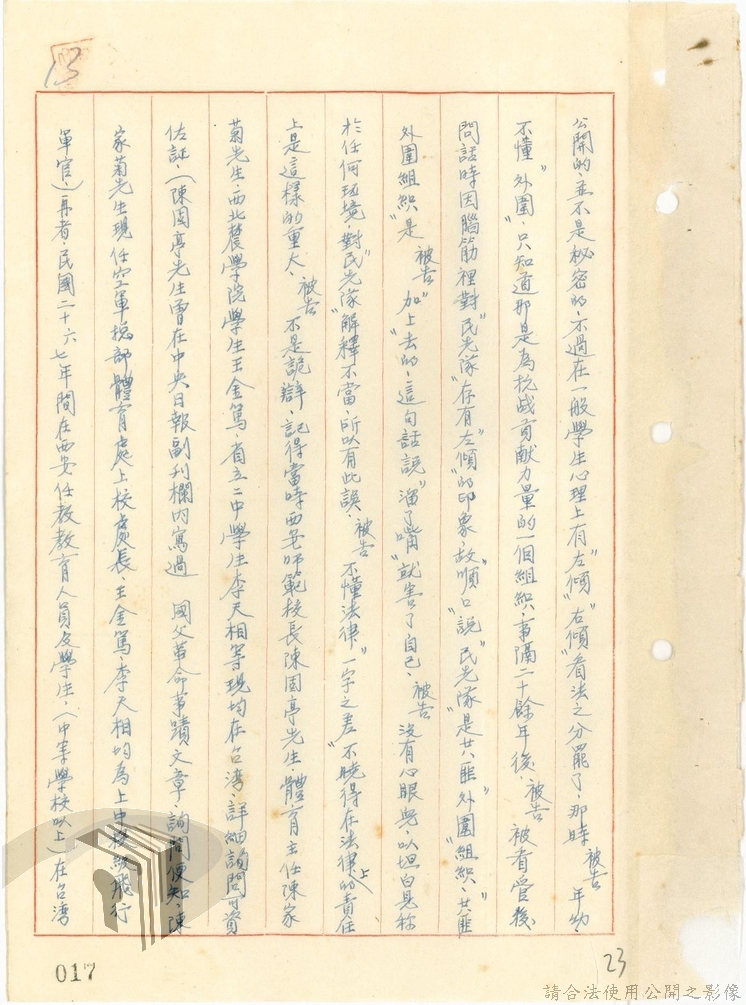 13
公開的，並不是秘密的，不過在一般學生心理上有“左傾”“右傾”看法之分罷了，那時被告年幼，
不懂“外圍”，只知道那是為抗战貢献力量的一個組織，事隔二十餘年後，被告被看管後
問話時因腦筋裡對“民先隊”存有“左傾”的印象，故順口說“民先隊”是共匪外圍“組織”，“共匪
外圍組織”是被告“加”上去的，這句話說“溜了嘴”就害了自己，被告沒有心眼兒，以坦白是称
於任何环境，對“民先隊”解釋不當，所以有此誤，被告不懂法律“一字之差”，不曉得在法律上的責任
上是這樣的重大，被告不是詭辯，記得當時西安師範校長陳固亭先生，體育主任陳家
菊先生，西北農學院學生王金篤，省立二中學生李天相等現均在台湾，詳細詢問可資
佐証，(陳固亭先生曾在中央日報副刊欄内寫過 國父革命事蹟文章，詢問便知，陳
家菊先生現任空軍總部體育處上校處長，王金篤，李天相均為上中校級飛行
軍官)，再者，民國二十六七年間在西安任教教育人員及學生，(中等學校以上)在台湾
017
23
請合法使用公開之影像